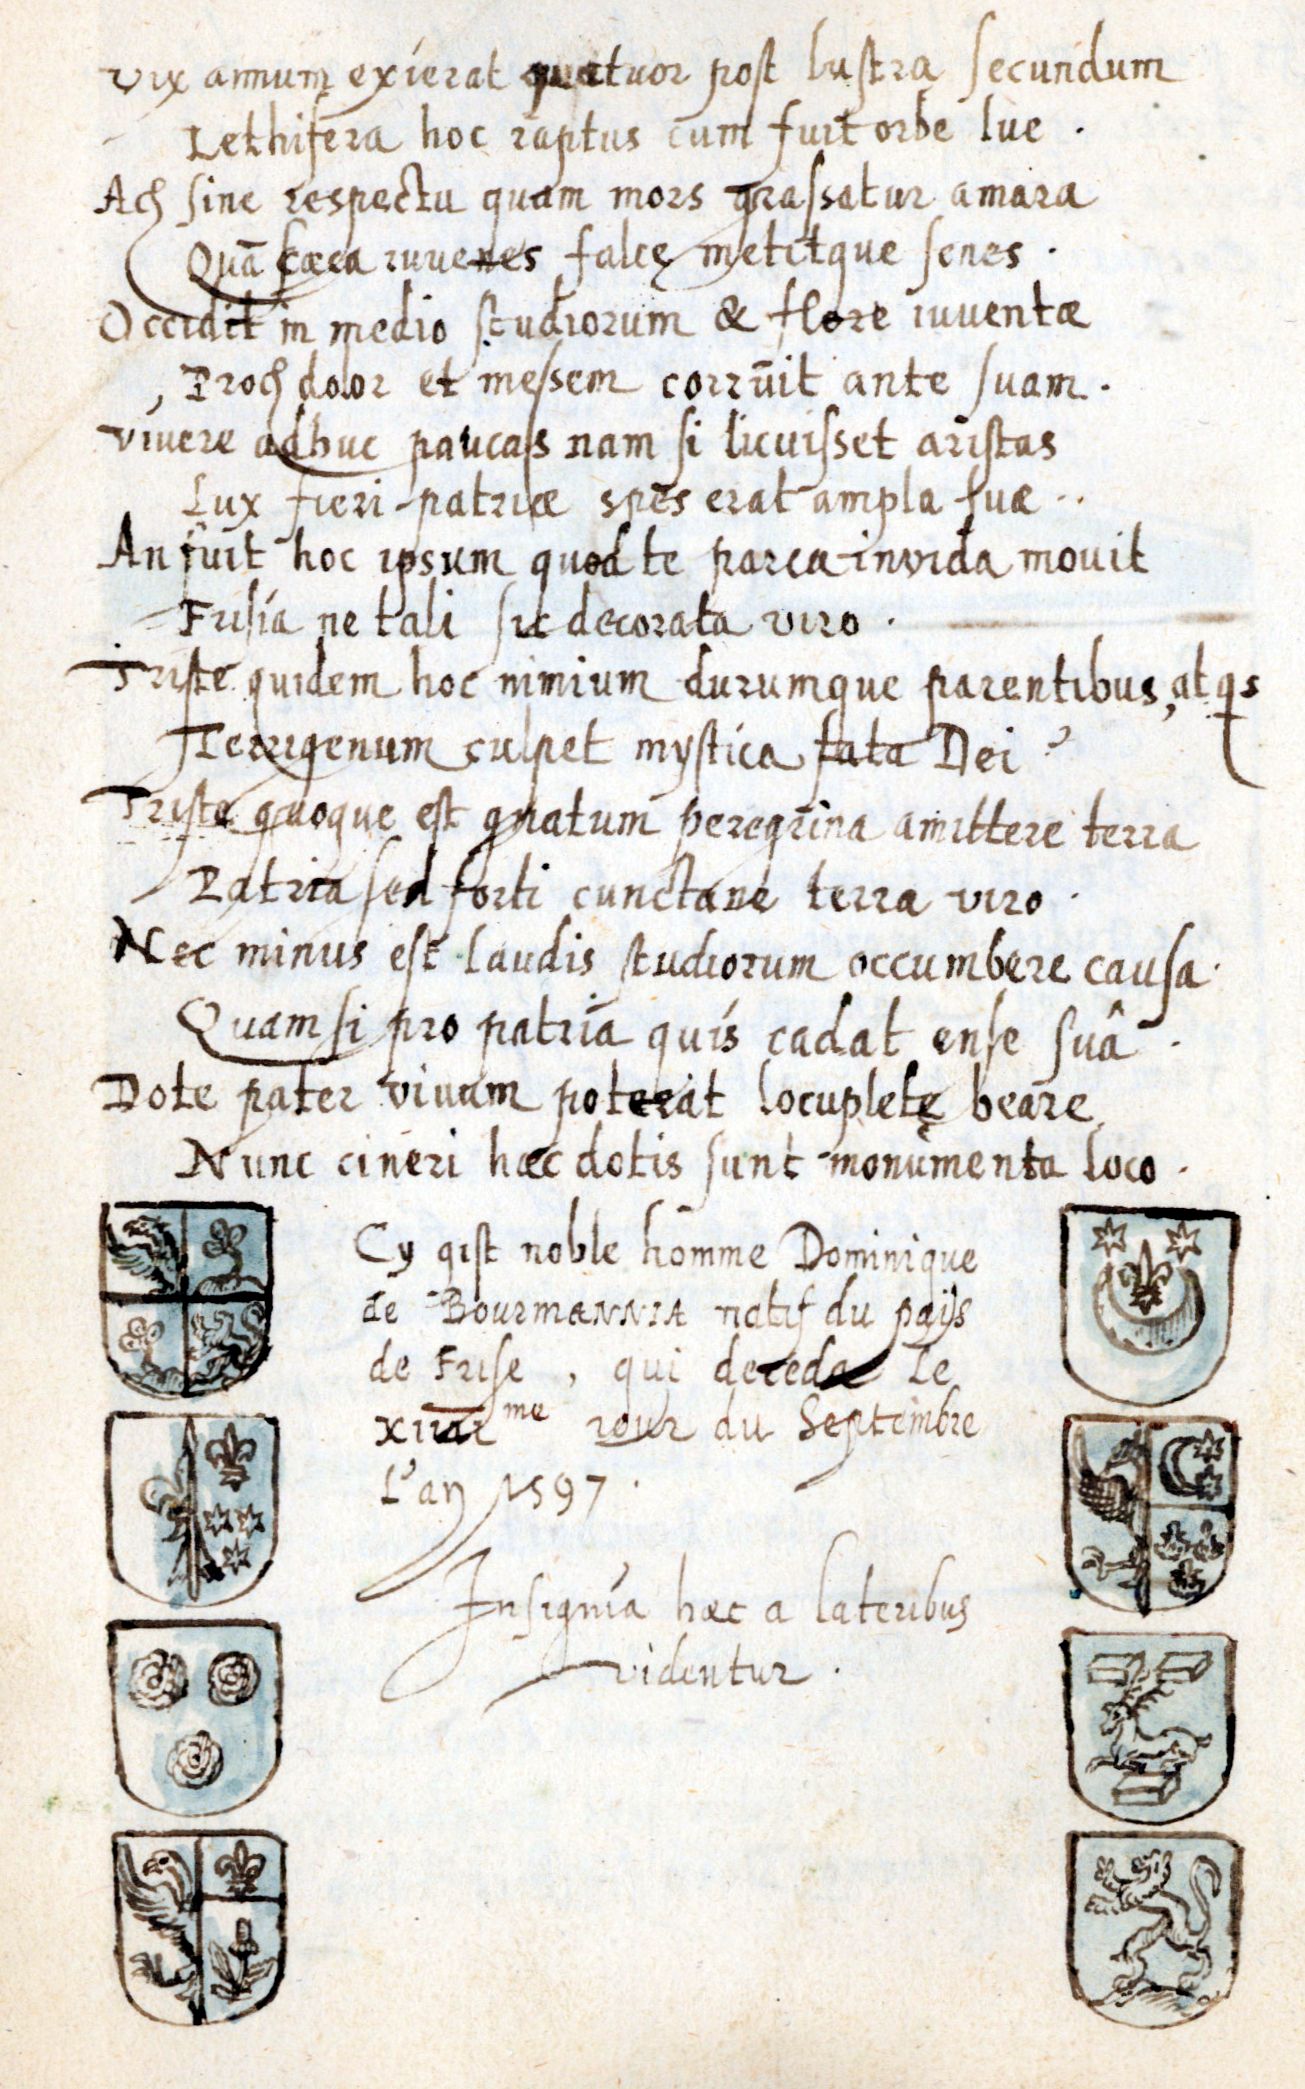 Vix annum exierat quatuor post lustra secundum
Lethifera hoc raptus cum furit orbe lue .
Ach sine respectu quam mors grassatur amara
Quā cæca iuvenes falcę metitque senes .
Occidit in medio studiorum & flore iuventæ
Proch dolor et messem corrūit ante suam .
Vivere adhuc paucas nam si licuisset aristas
Lux fieri patriæ spes erat ampla suæ .
An fuit hoc ipsum quod te parca invida movit
Frisia ne tali sic decorata viro .
Triste quidem hoc nimium durumque parentibus, at qs
Terrigenum culpet mystica fata Dei ?
Triste quoque est gnatum peregrina amittere terra
Patria sed forti cunctane terra viro .
Nec minus est laudis studiorum occumbere causa .
Quam si pro patriā quis cadat ense suâ .
Dote pater vivum poterat locupletę beare
Nunc cineri hæc dotis sunt monumenta loco .
Cy gist noble homme Dominique
de Bourmannia natif du pays
de Frise , qui deceda le
xiiiie me iour du Septembre
L'an 1597 .
Insignia hæc a lateribus
videntur .